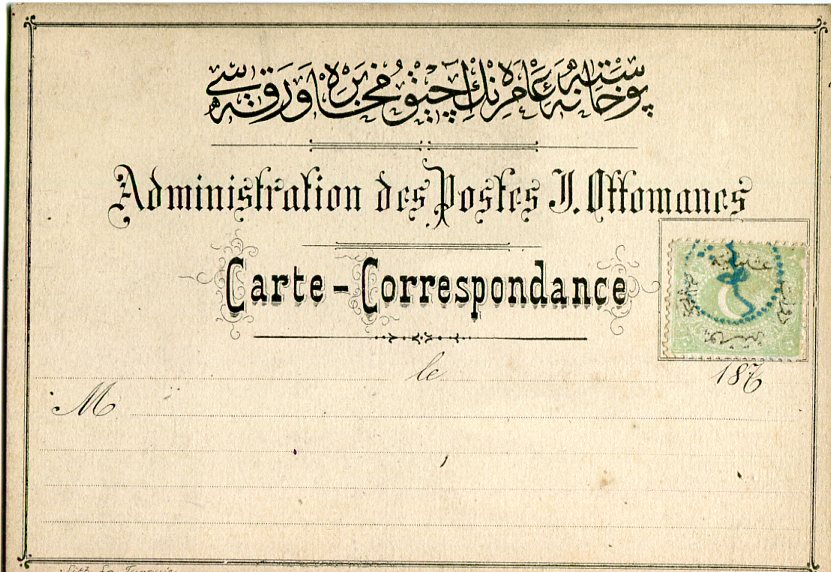 پوسته خانهٔ عامره نك آچيق مخابره ورقه سى
Administration des Postes I. Ottomanes
Carte-Correspondance
le 187
M